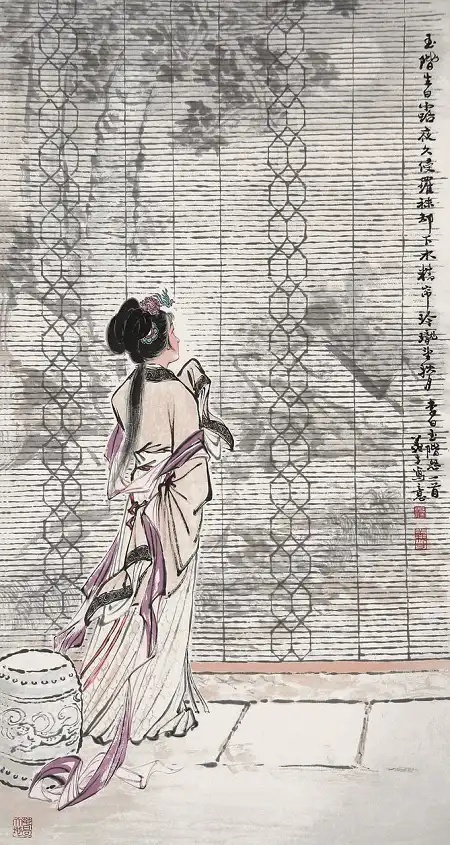 玉階生白露夜久侵羅袜却下水精帘玲瓏望秋月 李白玉階怨一首
寫意